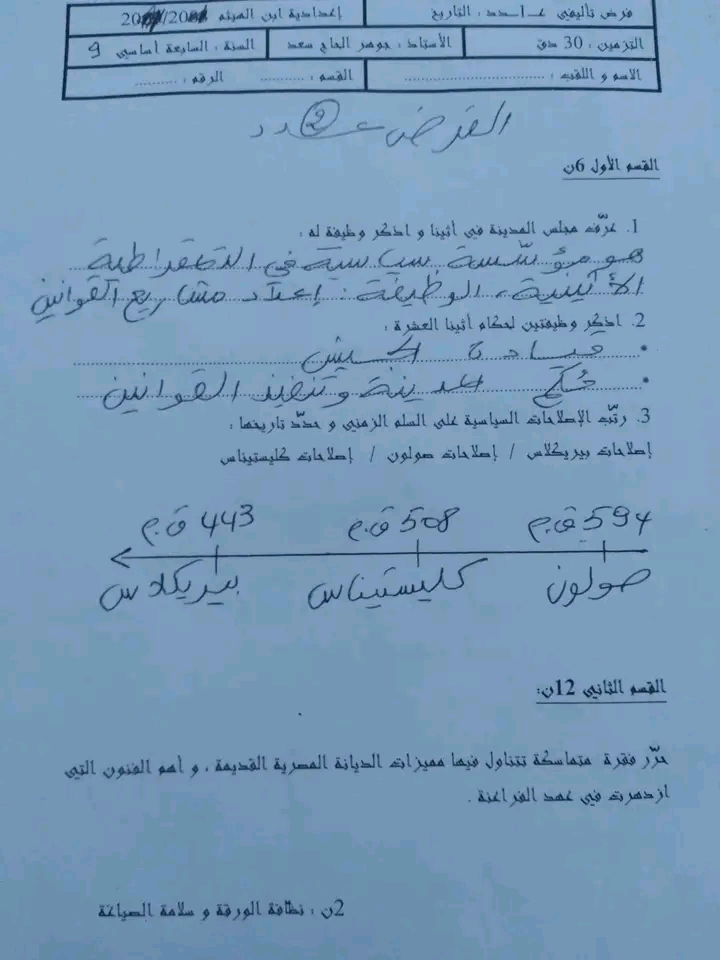 فرض تأليفي عـــدد : التاريخ
إعدادية ابن الهيثم
التزمين : 30 دق
الأستاذ : جوهر الحاج سعد
السنة : السابعة أساسي 9
الاسم و اللقب : ........................................
القسم : ..........
الرقم : ..........
الفرض عـ2ـدد
القسم الأول 6ن
1. عرّف مجلس المدينة في أثينا و اذكر وظيفة له :
هو مؤسّسة سياسية في الديمقراطية
الأثينية، الوظيفة : إعداد مشاريع القوانين
2. اذكر وظيفتين لحكام أثينا العشرة :
• قيادة الجيش
• حكم المدينة وتنفيذ القوانين
3. رتّب الإصلاحات السياسية على السلم الزمني و حدّد تاريخها :
إصلاحات بيريكلاس / إصلاحات صولون / إصلاحات كليستيناس
594 ق.م 508 ق.م 443 ق.م
صولون كليستيناس بيريكلاس
القسم الثاني 12ن:
حرّر فقرة متماسكة تتناول فيها مميزات الديانة المصرية القديمة ، و أهم الفنون التي
ازدهرت في عهد الفراعنة .
2ن : نظافة الورقة و سلامة الصياغة